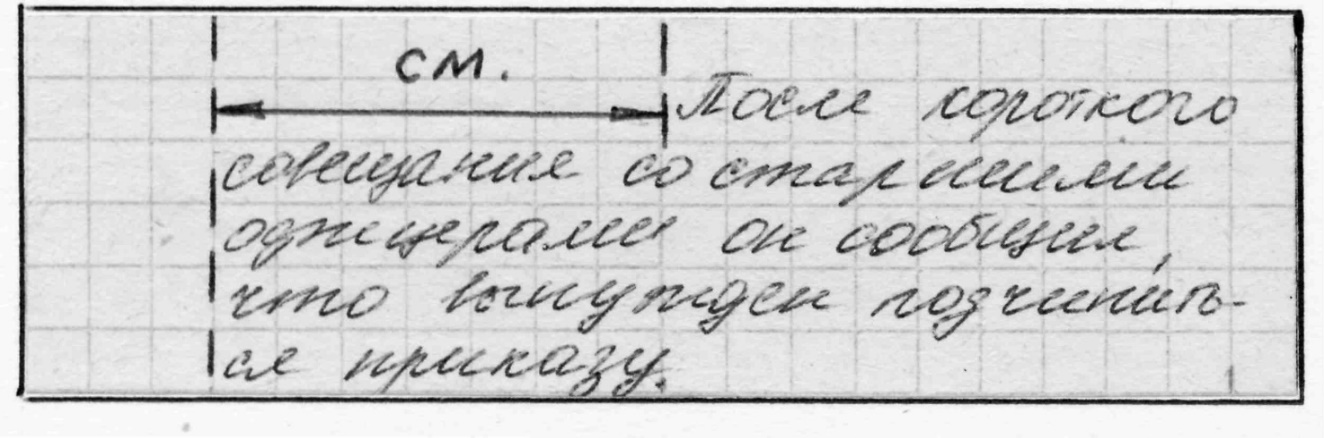 см.
После короткого
совещания со старшими
офицерами он сообщил,
что вынужден подчинить-
ся приказу.